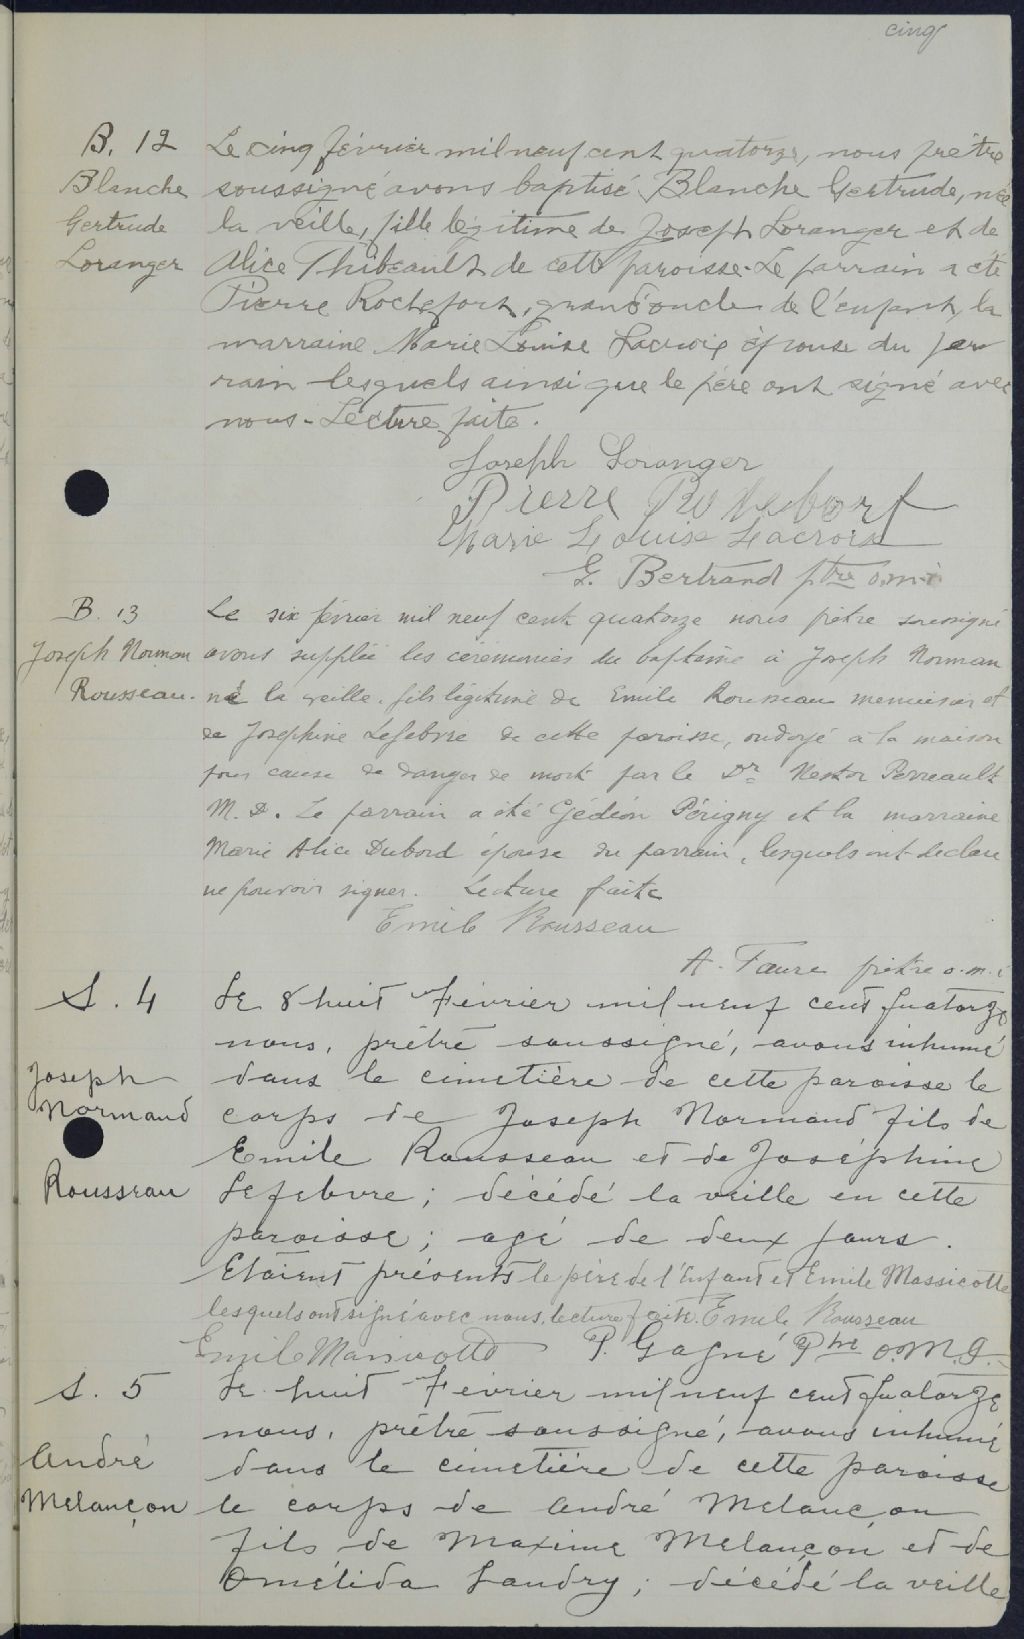 cinq
B. 12
Blanche
Gertrude
Loranger
Le cinq février mil neuf cent quatorze, nous prêtre
soussigné avons baptisé Blanche Gertrude, née
la veille, fille légitime de Joseph Loranger et de
Alice Thibeault de cette paroisse. Le parrain a été
Pierre Rochefort, grand'oncle de l'enfant, la
marraine Marie Louise Lacroix épouse du par
rain lesquels ainsi que le père ont signé avec
nous. Lecture faite.
Joseph Loranger
Pierre Rochefort
Marie Louise Lacroix
G. Bertrand ptre o.m.i
B. 13
Joseph Norman
Rousseau.
Le six février mil neuf cent quatorze nous prêtre soussigné
avons supplée les cérémonies du baptême à Joseph Norman
né la veille. fils légitime de Emile Rousseau menuisier et
de Josephine Lefebvre de cette paroisse, ondoyé à la maison
pour cause de danger de mort par le Dr Nestor Perreault
M. D. Le parrain a été Gédéon Périgny et la marraine
Marie Alice Dubord épouse du parrain, lesquels ont declaré
ne pouvoir signer. Lecture faite
Emile Rousseau
A. Faure prêtre o.m.i
S. 4
Joseph
Normand
Rousseau
Le 8 huit Février mil neuf cent quatorze
nous, prêtre soussigné, avons inhumé
dans le cimetière de cette paroisse le
corps de Joseph Normand fils de
Emile Rousseau et de Joséphine
Lefebvre; décédé la veille en cette
paroisse; agé de deux jours.
Etaient présents le père de l'Enfant et Emile Massicotte
lesquels ont signé avec nous, lecture faite. Emile Rousseau
Emile Massicotte P. Gagné Ptre O.M.I.
S. 5
André
Melançon
Le huit Février mil neuf cent quatorze
nous, prêtre soussigné, avons inhumé
dans le cimetière de cette paroisse
le corps de André Melançon
fils de Maxime Melançon et de
Omélida Landry; décédé la veille